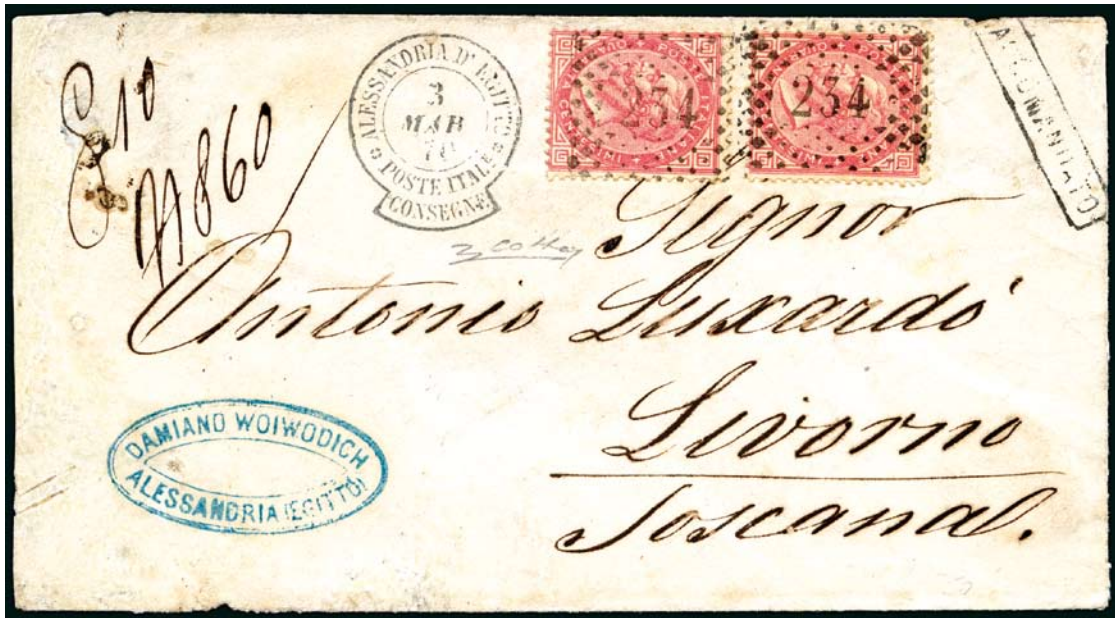 ALESSANDRIA D'EGITTO
3
MAR
70
POSTE ITALE
CONSEGNE
234
234
10
860
Signor
Antonio Luxardo
Livorno
Toscana.
DAMIANO WOIWODICH
ALESSANDRIA (EGITTO)